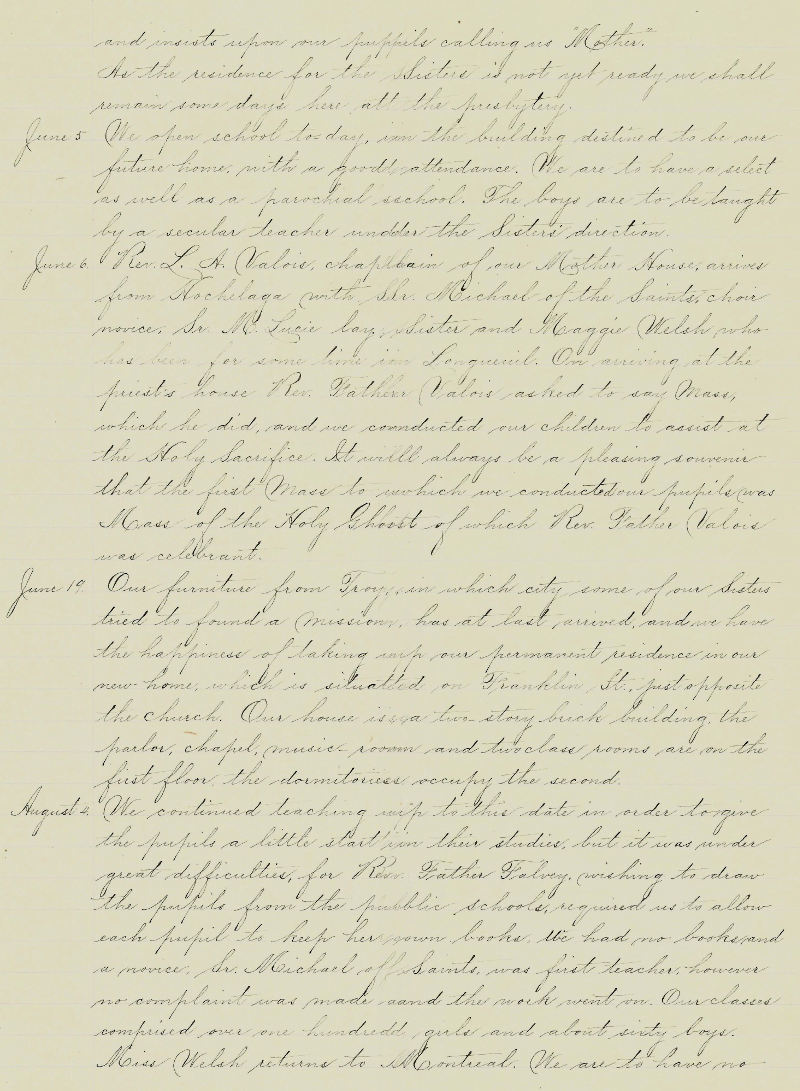 and insists upon our puppils calling us "Mother."
As the residence for the Sisters is not yet ready we shall
remain some days here att the presbytery.
June 5 We open school to=day, inn the building distined to be our
future home, with a goodd attendance. We are to have a select
as well as a parochial sschool. The boys are to be taught
by a secular teacher undder the Sisters' direction.
June 6. Rev. L. A. Valois, chapllain of our Mother House, arrives
from Hochelaga with SSr. Michael of the Saints, choir
novice, Sr. M. Lucie lay, Sister and Maggie Welsh who
has been for some time inn Longueuil. On arriving at the
priest's house Rev. Fatherr Valois asked to say Mass,
which he did, and we conducted our children to assist at
the Holy Sacrifice. It willl always be a pleasing souvenir
that the first Mass to wwhich we conducted our pupils was
Mass of the Holy Ghhost of which Rev. Father Valois
was celebrant.
June 19. Our furniture from Troy, in which city some of our Sisters
tried to found a missionn, has at last arrived, and we have
the happiness of taking uup our permanent residence in our
new home, which is situatted on Franklin St., just opposite
the church. Our house is a two-story brick building, the
parlor, chapel, music-rooom and two class rooms are on the
first floor, the dormitoriess occupy the second.
August 4. We continued teaching uup to this date in order to give
the pupils a little start inn their studies, but it was under
great difficulties, for Revv. Father Falvey, wishing to draw
the pupils from the pubblic schools, required us to allow
each pupil to keep her own books. We had no books and
a novice, Sr. Michael off Saints, was first teacher, however
no complaint was made aand the work went on. Our classes
comprised over one hundredd girls and about sixty boys.
Miss Welsh returns to MMontreal. We are to have no